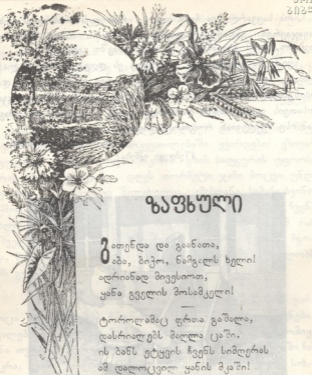 ზაფხული
გათენდა და გაანათა,
აბა, ბიჭო, ნამგალს ხელი!
ადრიანად მივესიოთ,
ყანა გველის მოსამკელი!
ტოროლამაც ფრთა გაშალა,
დასრიალებს მაღლა ცაში.
ის ბანს ეტყვის ჩვენს სიმღერას
ამ დალოცვილ ყანის მკაში!